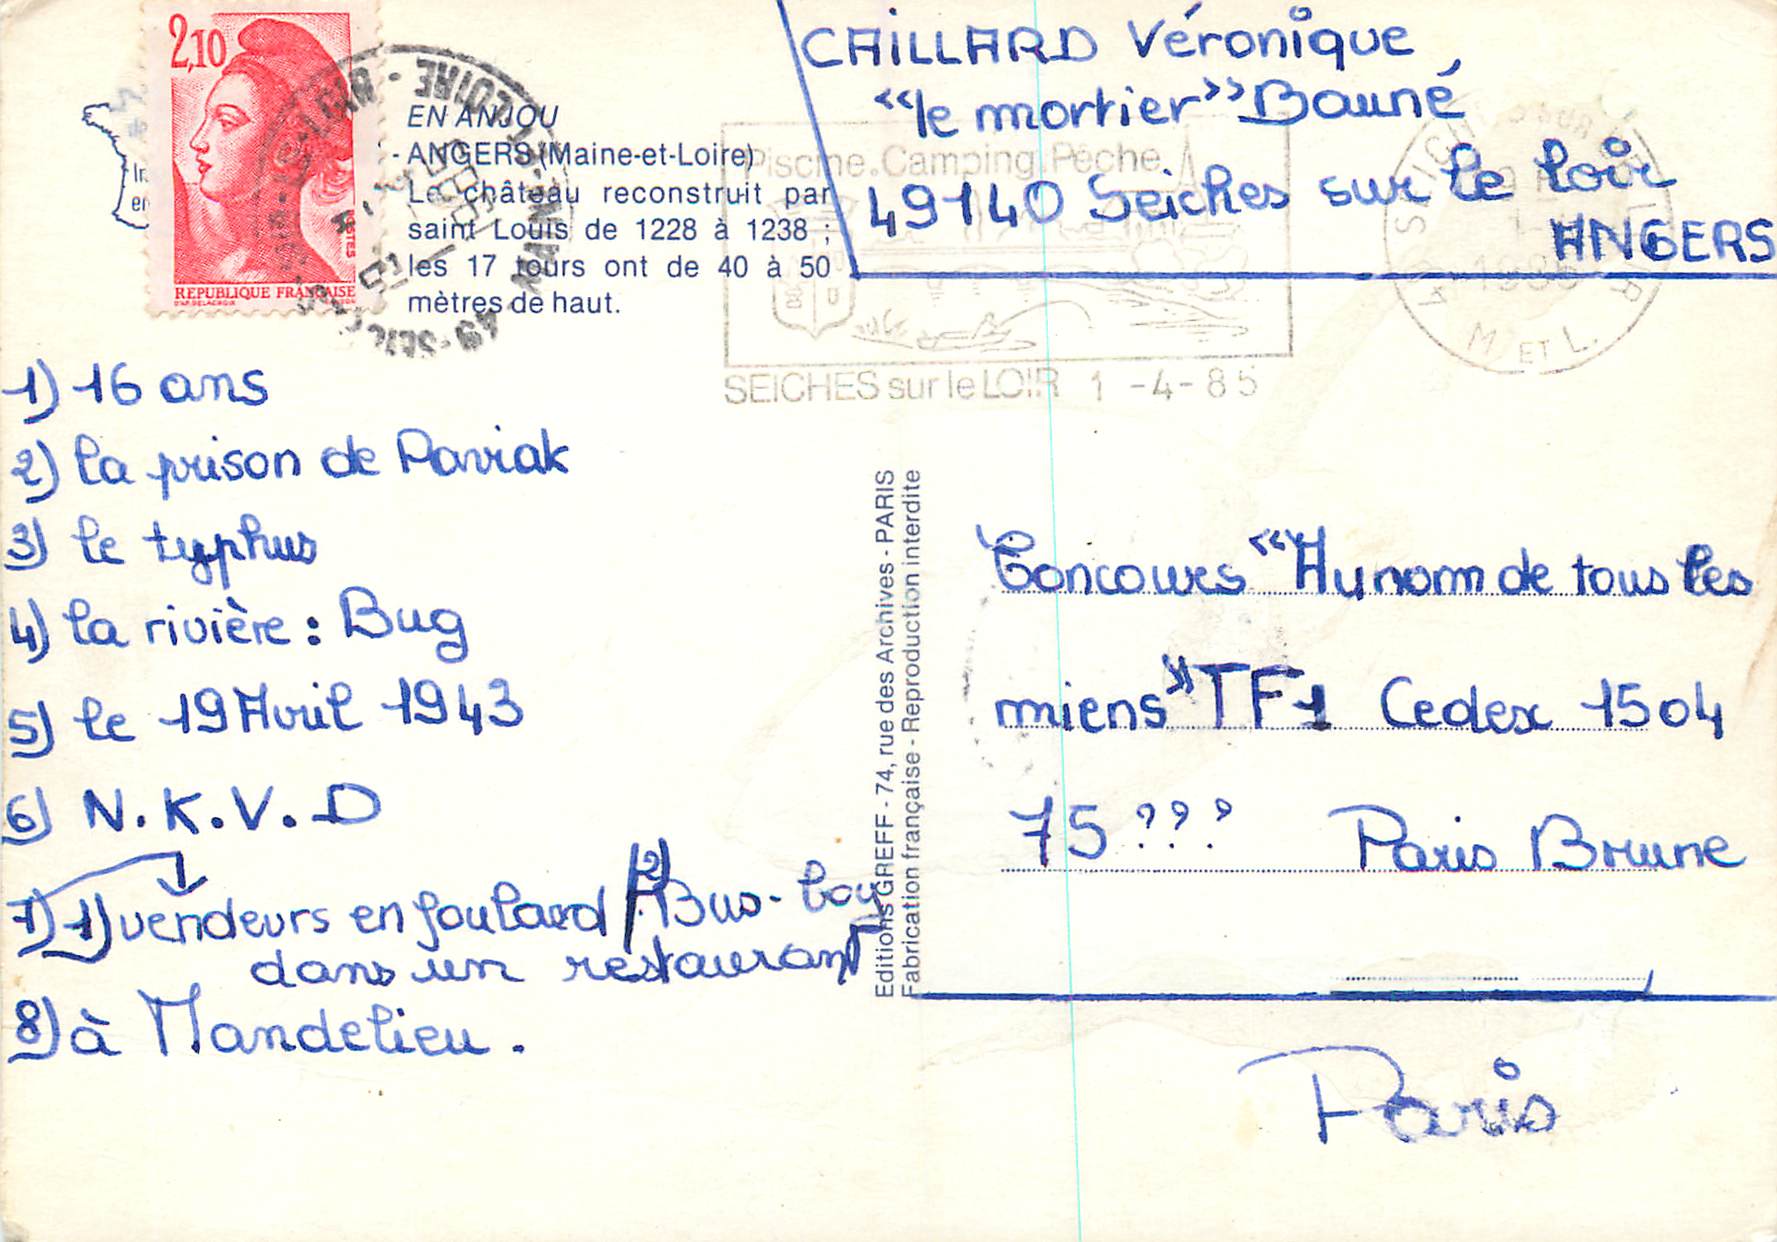 2,10
REPUBLIQUE FRANÇAISE
POSTES
EN ANJOU
- ANGERS (Maine-et-Loire)
Le château reconstruit par
saint Louis de 1228 à 1238 ;
les 17 tours ont de 40 à 50
mètres de haut.
CAILLARD Véronique
"le mortier" Bauné
49140 Seiches sur le loir
ANGERS
Piscine.Camping.Pêche
SEICHES sur le LOIR 1 -4- 85
M. ET L.
1) 16 ans
2) la prison de Paviak
3) le typhus
4) la rivière : Bug
5) le 19 Avril 1943
6) N.K.V.D
7) 1) vendeurs en foulard 2) Bus-boy
dans un restaurant
8) à Mandelieu.
Editions GREFF - 74, rue des Archives - PARIS
Fabrication française - Reproduction interdite
Concours "Au nom de tous les
miens" TF1 Cedex 1504
75 ??? Paris Brune
Paris